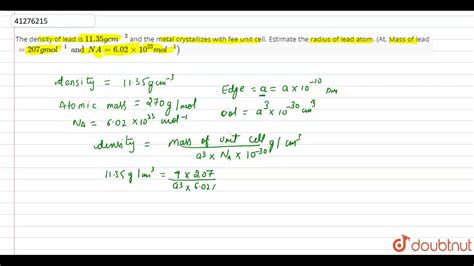 41276215
The density of lead is 11.35gcm⁻³ and the metal crystallizes with fee unit cell. Estimate the radius of lead atom. (At. Mass of lead
= 207gmol⁻¹ and NA = 6.02 × 10²³mol⁻¹)
density = 11.35 gcm⁻³
Edge = a = a × 10⁻¹⁰ cm
Atomic mass = 270 g/mol
vol = a³ × 10⁻³⁰ cm³
NA = 6.02 × 10²³ mol⁻¹
density = mass of unit cell g/cm³
a³ × NA × 10⁻³⁰
11.35 g/cm³ = 4 × 207
a³ × 6.02
doubtnut